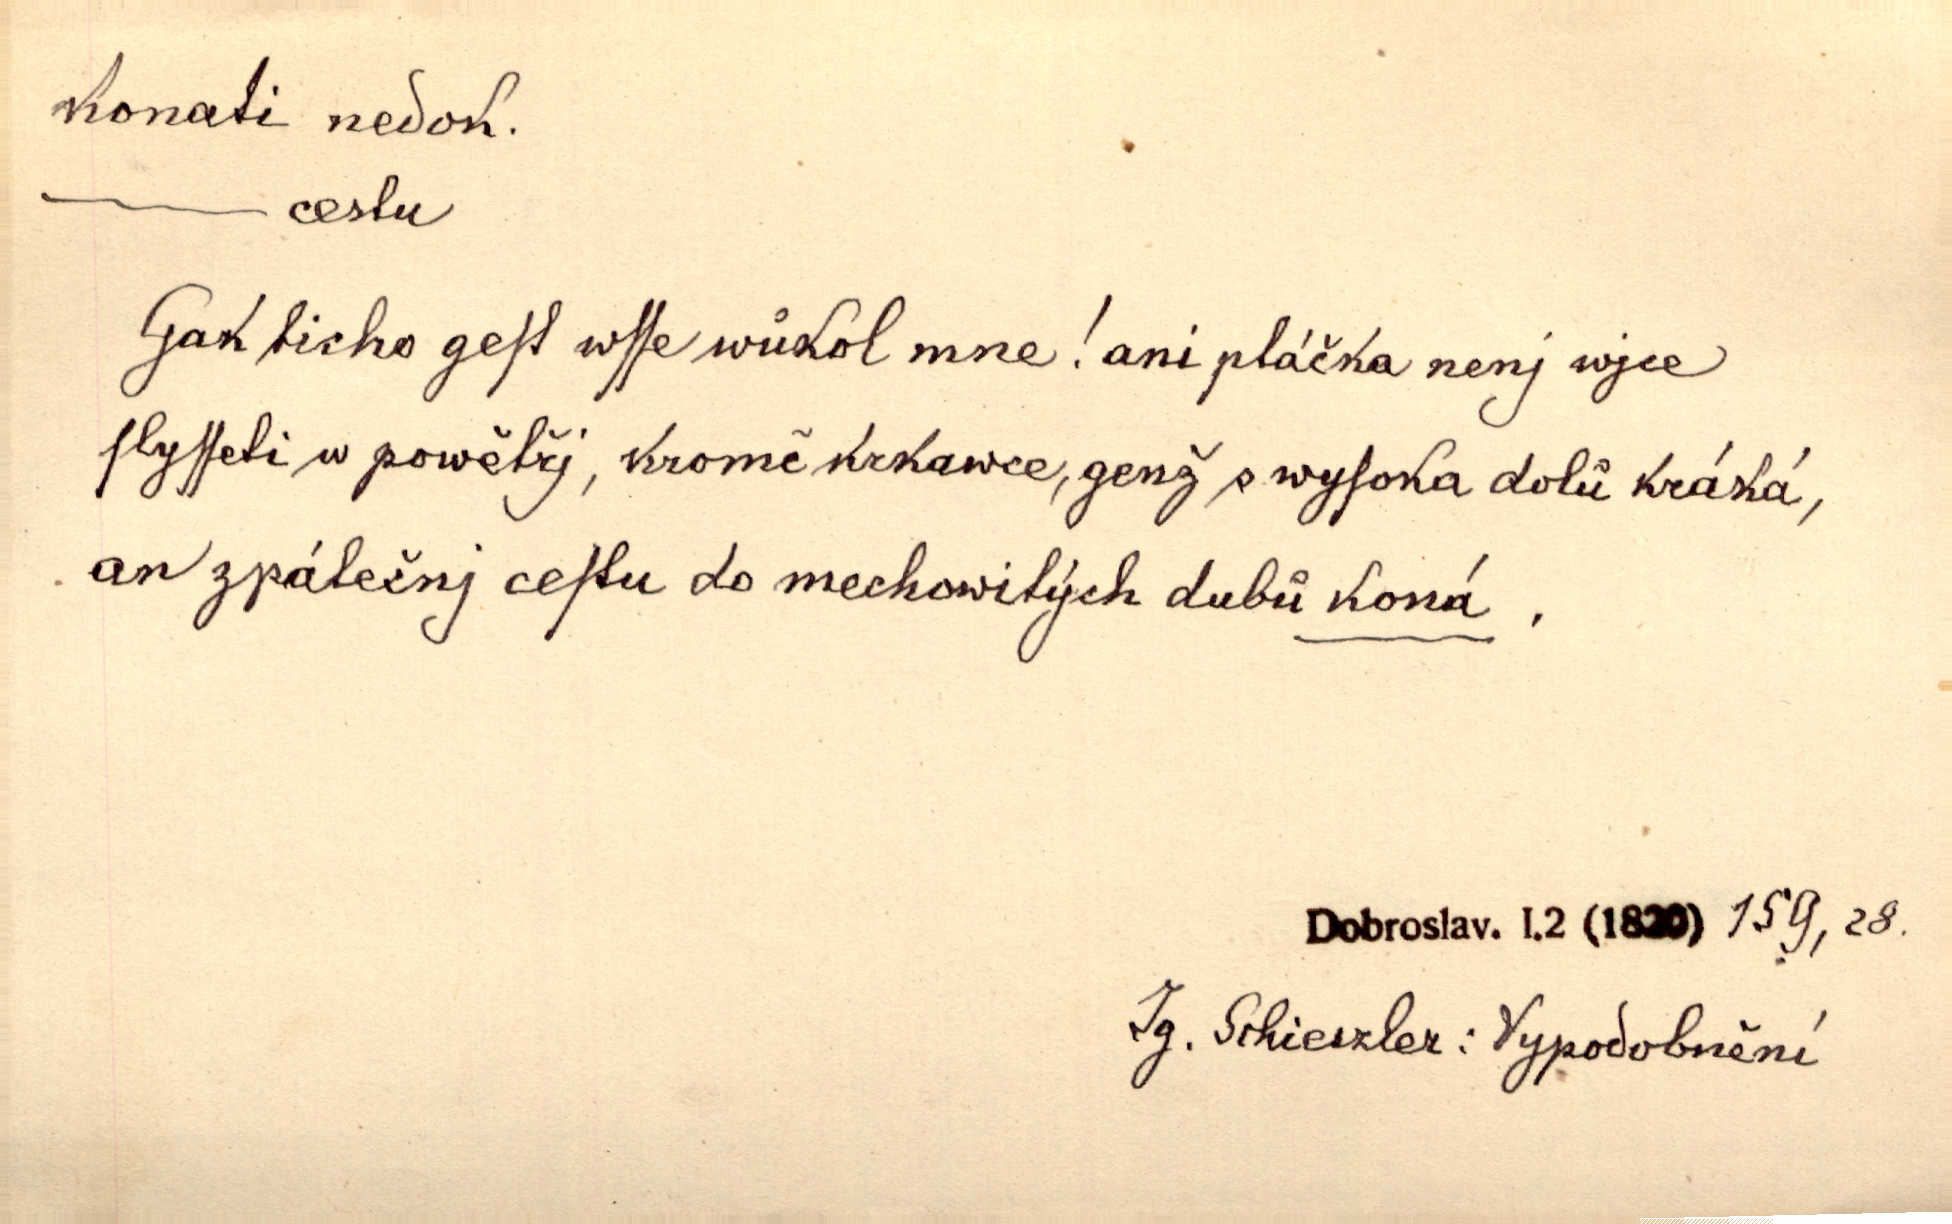 Konati nedok.
——— cestu
Gak ticho geſt wſſe wůkol mne! ani pláčka nenj wjce
ſlyſſeti w powětřj, kromě krkawce, genž s wyſoka dolů kráká,
an zpátečnj ceſtu do mechowitých dubů koná,
Dobroslav. I.2 (1820) 159, 28.
Ig. Schieszler: Vypodobnění